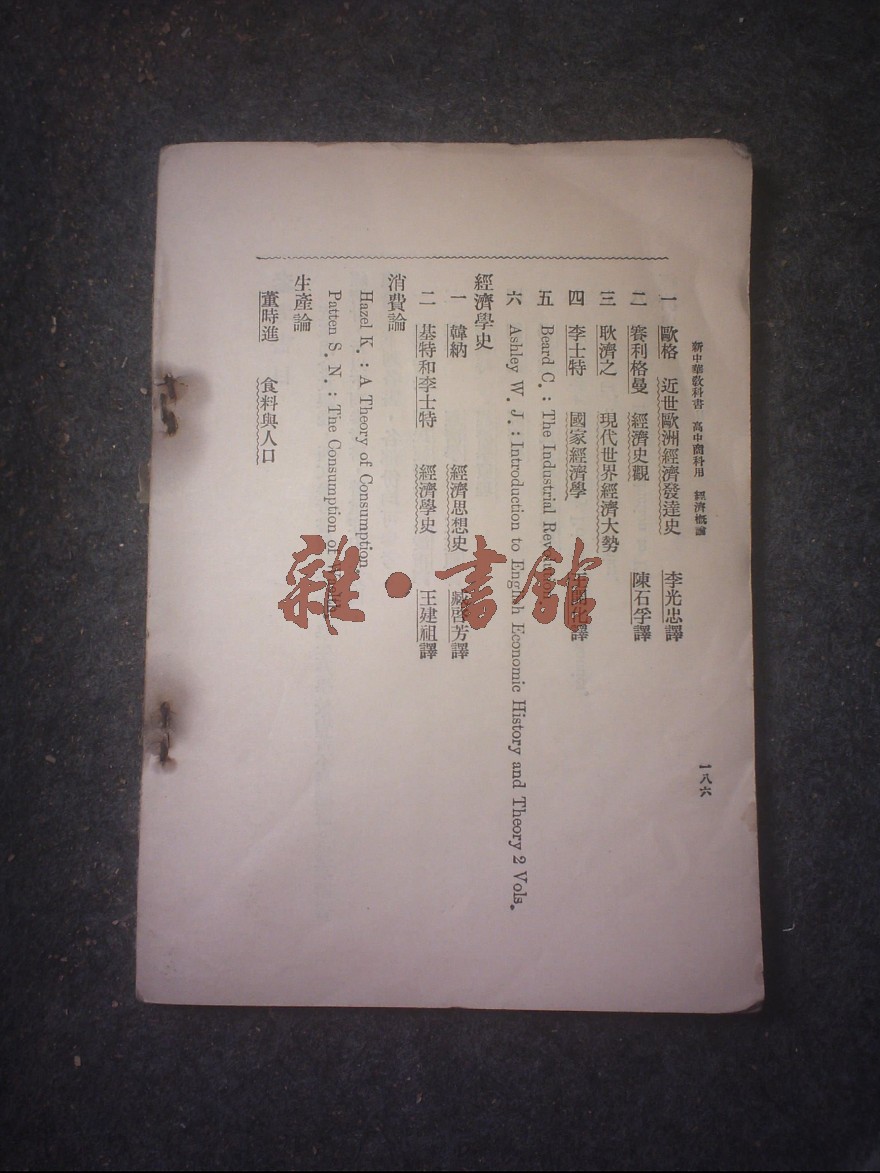 新中華教科書 高中商科用 經濟概論
一八六
一 歐格 近世歐洲經濟發達史 李光忠譯
二 賽利格曼 經濟史觀 陳石孚譯
三 耿濟之 現代世界經濟大勢
四 李士特 國家經濟學 王開化譯
五 Beard C. : The Industrial Revolution
六 Ashley W. J. : Introduction to English Economic History and Theory 2 Vols.
經濟學史
一 韓納 經濟思想史 臧啓芳譯
二 基特和李士特 經濟學史 王建祖譯
消費論
Hazel K. : A Theory of Consumption.
Patten S. N. : The Consumption of
生產論
董時進 食料與人口
雜·書館